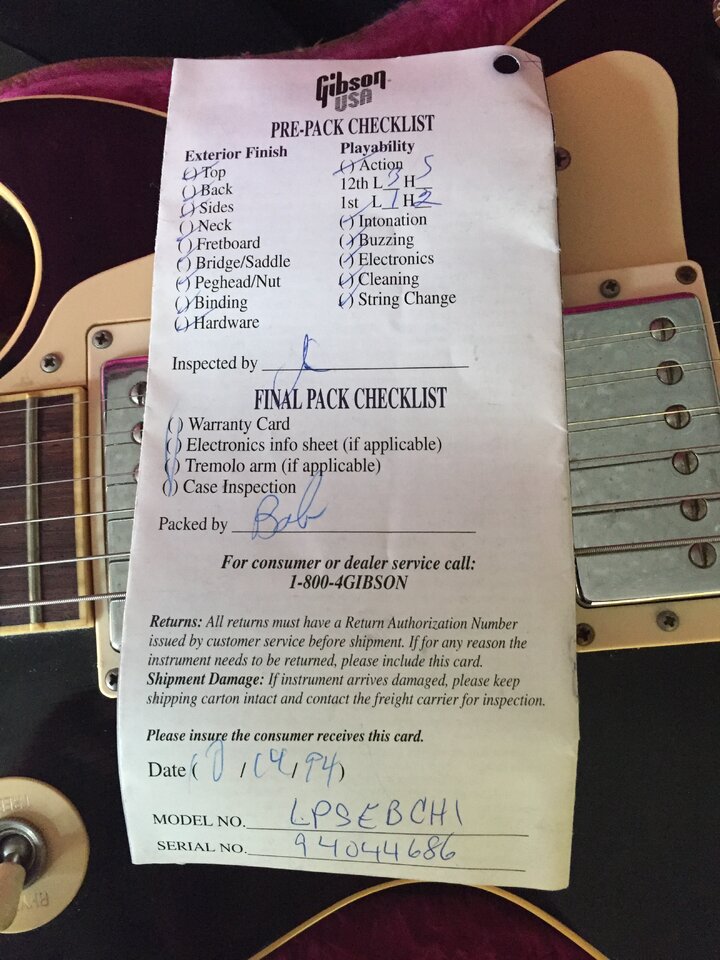 Gibson
USA
PRE-PACK CHECKLIST
Exterior Finish
( ) Top
( ) Back
( ) Sides
( ) Neck
( ) Fretboard
( ) Bridge/Saddle
( ) Peghead/Nut
( ) Binding
( ) Hardware
Playability
( ) Action
12th L 3 H 5
1st L 1 H 2
( ) Intonation
( ) Buzzing
( ) Electronics
( ) Cleaning
( ) String Change
Inspected by
FINAL PACK CHECKLIST
( ) Warranty Card
( ) Electronics info sheet (if applicable)
( ) Tremolo arm (if applicable)
( ) Case Inspection
Packed by Bob
For consumer or dealer service call:
1-800-4GIBSON
Returns: All returns must have a Return Authorization Number
issued by customer service before shipment. If for any reason the
instrument needs to be returned, please include this card.
Shipment Damage: If instrument arrives damaged, please keep
shipping carton intact and contact the freight carrier for inspection.
Please insure the consumer receives this card.
Date ( / 14 / 94 )
MODEL NO. LPSEBCH1
SERIAL NO. 94044686